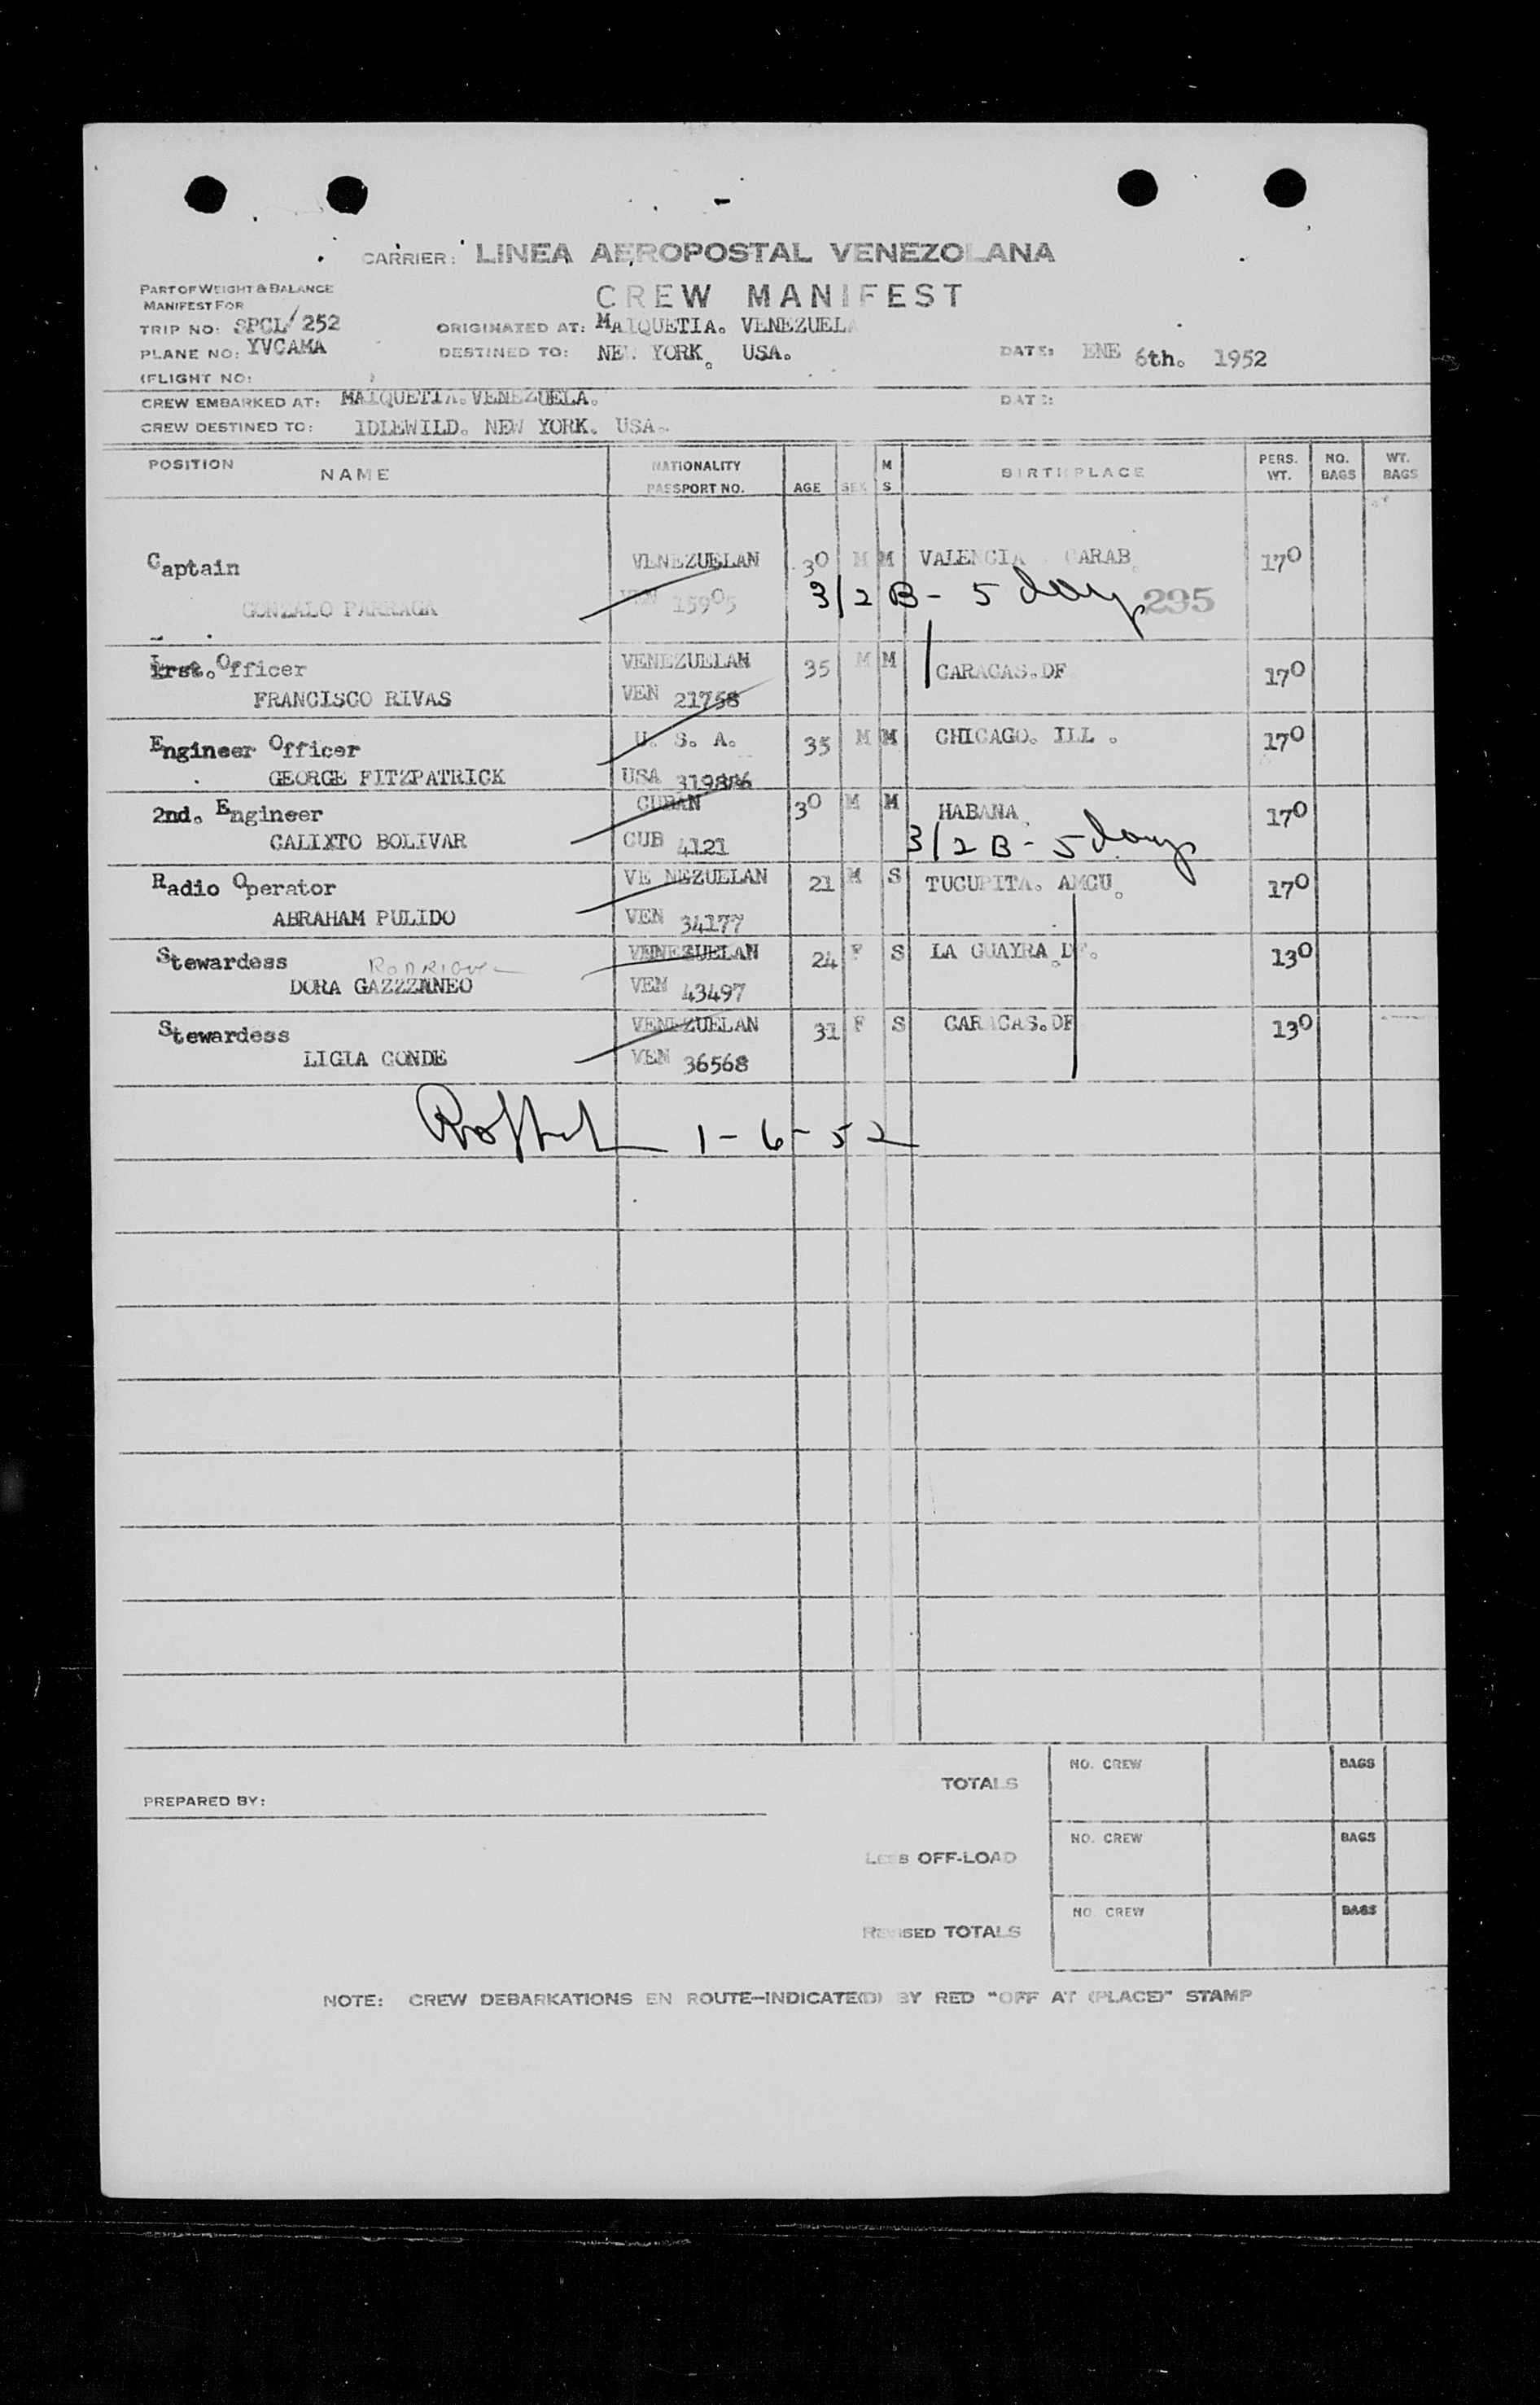 CARRIER: LINEA AEROPOSTAL VENEZOLANA
PART OF WEIGHT & BALANCE
MANIFEST FOR
CREW MANIFEST
TRIP NO: SPCL/252
ORIGINATED AT: MAIQUETIA. VENEZUELA
PLANE NO: YVCAMA
DESTINED TO: NEW YORK. USA.
DATE: ENE 6th. 1952
(FLIGHT NO:
CREW EMBARKED AT: MAIQUETIA. VENEZUELA.
DATE:
CREW DESTINED TO: IDLEWILD. NEW YORK. USA.
POSITION NAME NATIONALITY PASSPORT NO. AGE SEX M S BIRTHPLACE PERS. WT. NO. BAGS WT. BAGS
Captain VENEZUELAN 30 M M VALENCIA CARAB. 170
GONZALO PARRAGA VEN 15905 3/2 B - 5 days 295
1rst. Officer VENEZUELAN 35 M M CARACAS.DF 170
FRANCISCO RIVAS VEN 21758
Engineer Officer U. S. A. 35 M M CHICAGO. ILL . 170
GEORGE FITZPATRICK USA
2nd. Engineer CUBAN 30 M M HABANA. 170
CALIXTO BOLIVAR CUB 4121 3/2 B - 5 days
Radio Operator VE NEZUELAN 21 M S TUCUPITA. AMCU. 170
ABRAHAM PULIDO VEN 34177
Stewardess VENEZUELAN 24 F S LA GUAYRA.DF. 130
DORA VEN 43497
Stewardess VENEZUELAN 31 F S CARACAS.DF 130
LIGIA CONDE VEN 36568
1-6-52
TOTALS NO. CREW BAGS
PREPARED BY:
LESS OFF-LOAD NO. CREW BAGS
REVISED TOTALS NO. CREW BAGS
NOTE: CREW DEBARKATIONS EN ROUTE—INDICATE(D) BY RED "OFF AT (PLACE)" STAMP